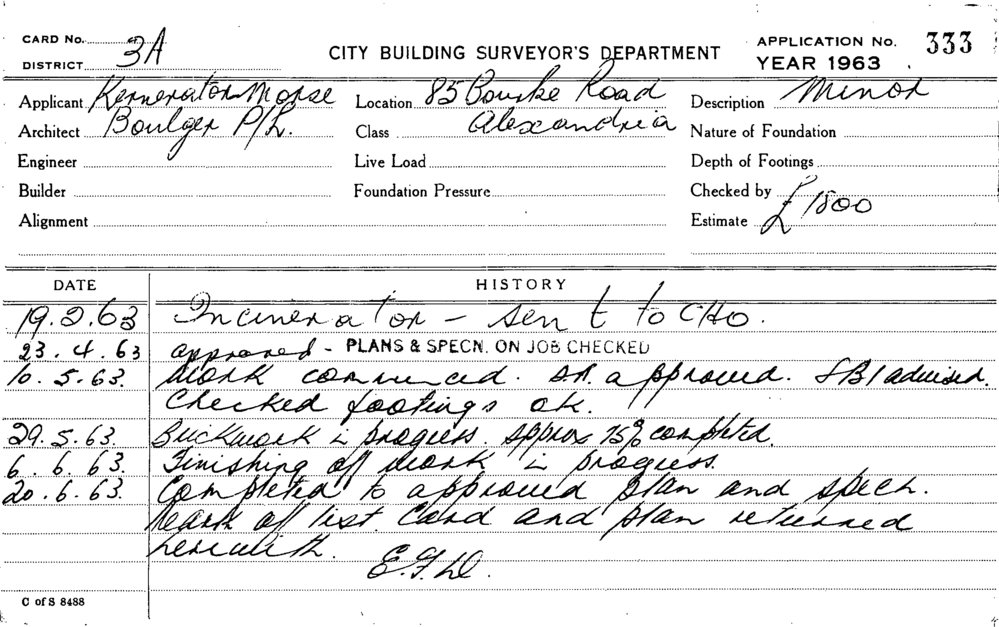 CARD No.
DISTRICT 3A
CITY BUILDING SURVEYOR'S DEPARTMENT
APPLICATION No. 333
YEAR 1963
Applicant Kernerator Morse
Location 85 Bourke Road
Description Minor
Architect Boulger P/L.
Class Alexandria
Nature of Foundation
Engineer
Live Load
Depth of Footings
Builder
Foundation Pressure
Checked by
Alignment
Estimate £1800
DATE HISTORY
19.2.63 Incinerator - sent to CHO.
23.4.63 approved - PLANS & SPECN. ON JOB CHECKED
10.5.63. Work commenced. approved. SBI advised.
Checked footings ok.
29.5.63. Brickwork in progress. Approx 75% completed.
6.6.63. Finishing off work in progress.
20.6.63. Completed to approved plan and specn.
Mark off list. Card and plan returned
herewith.
C of S 8488